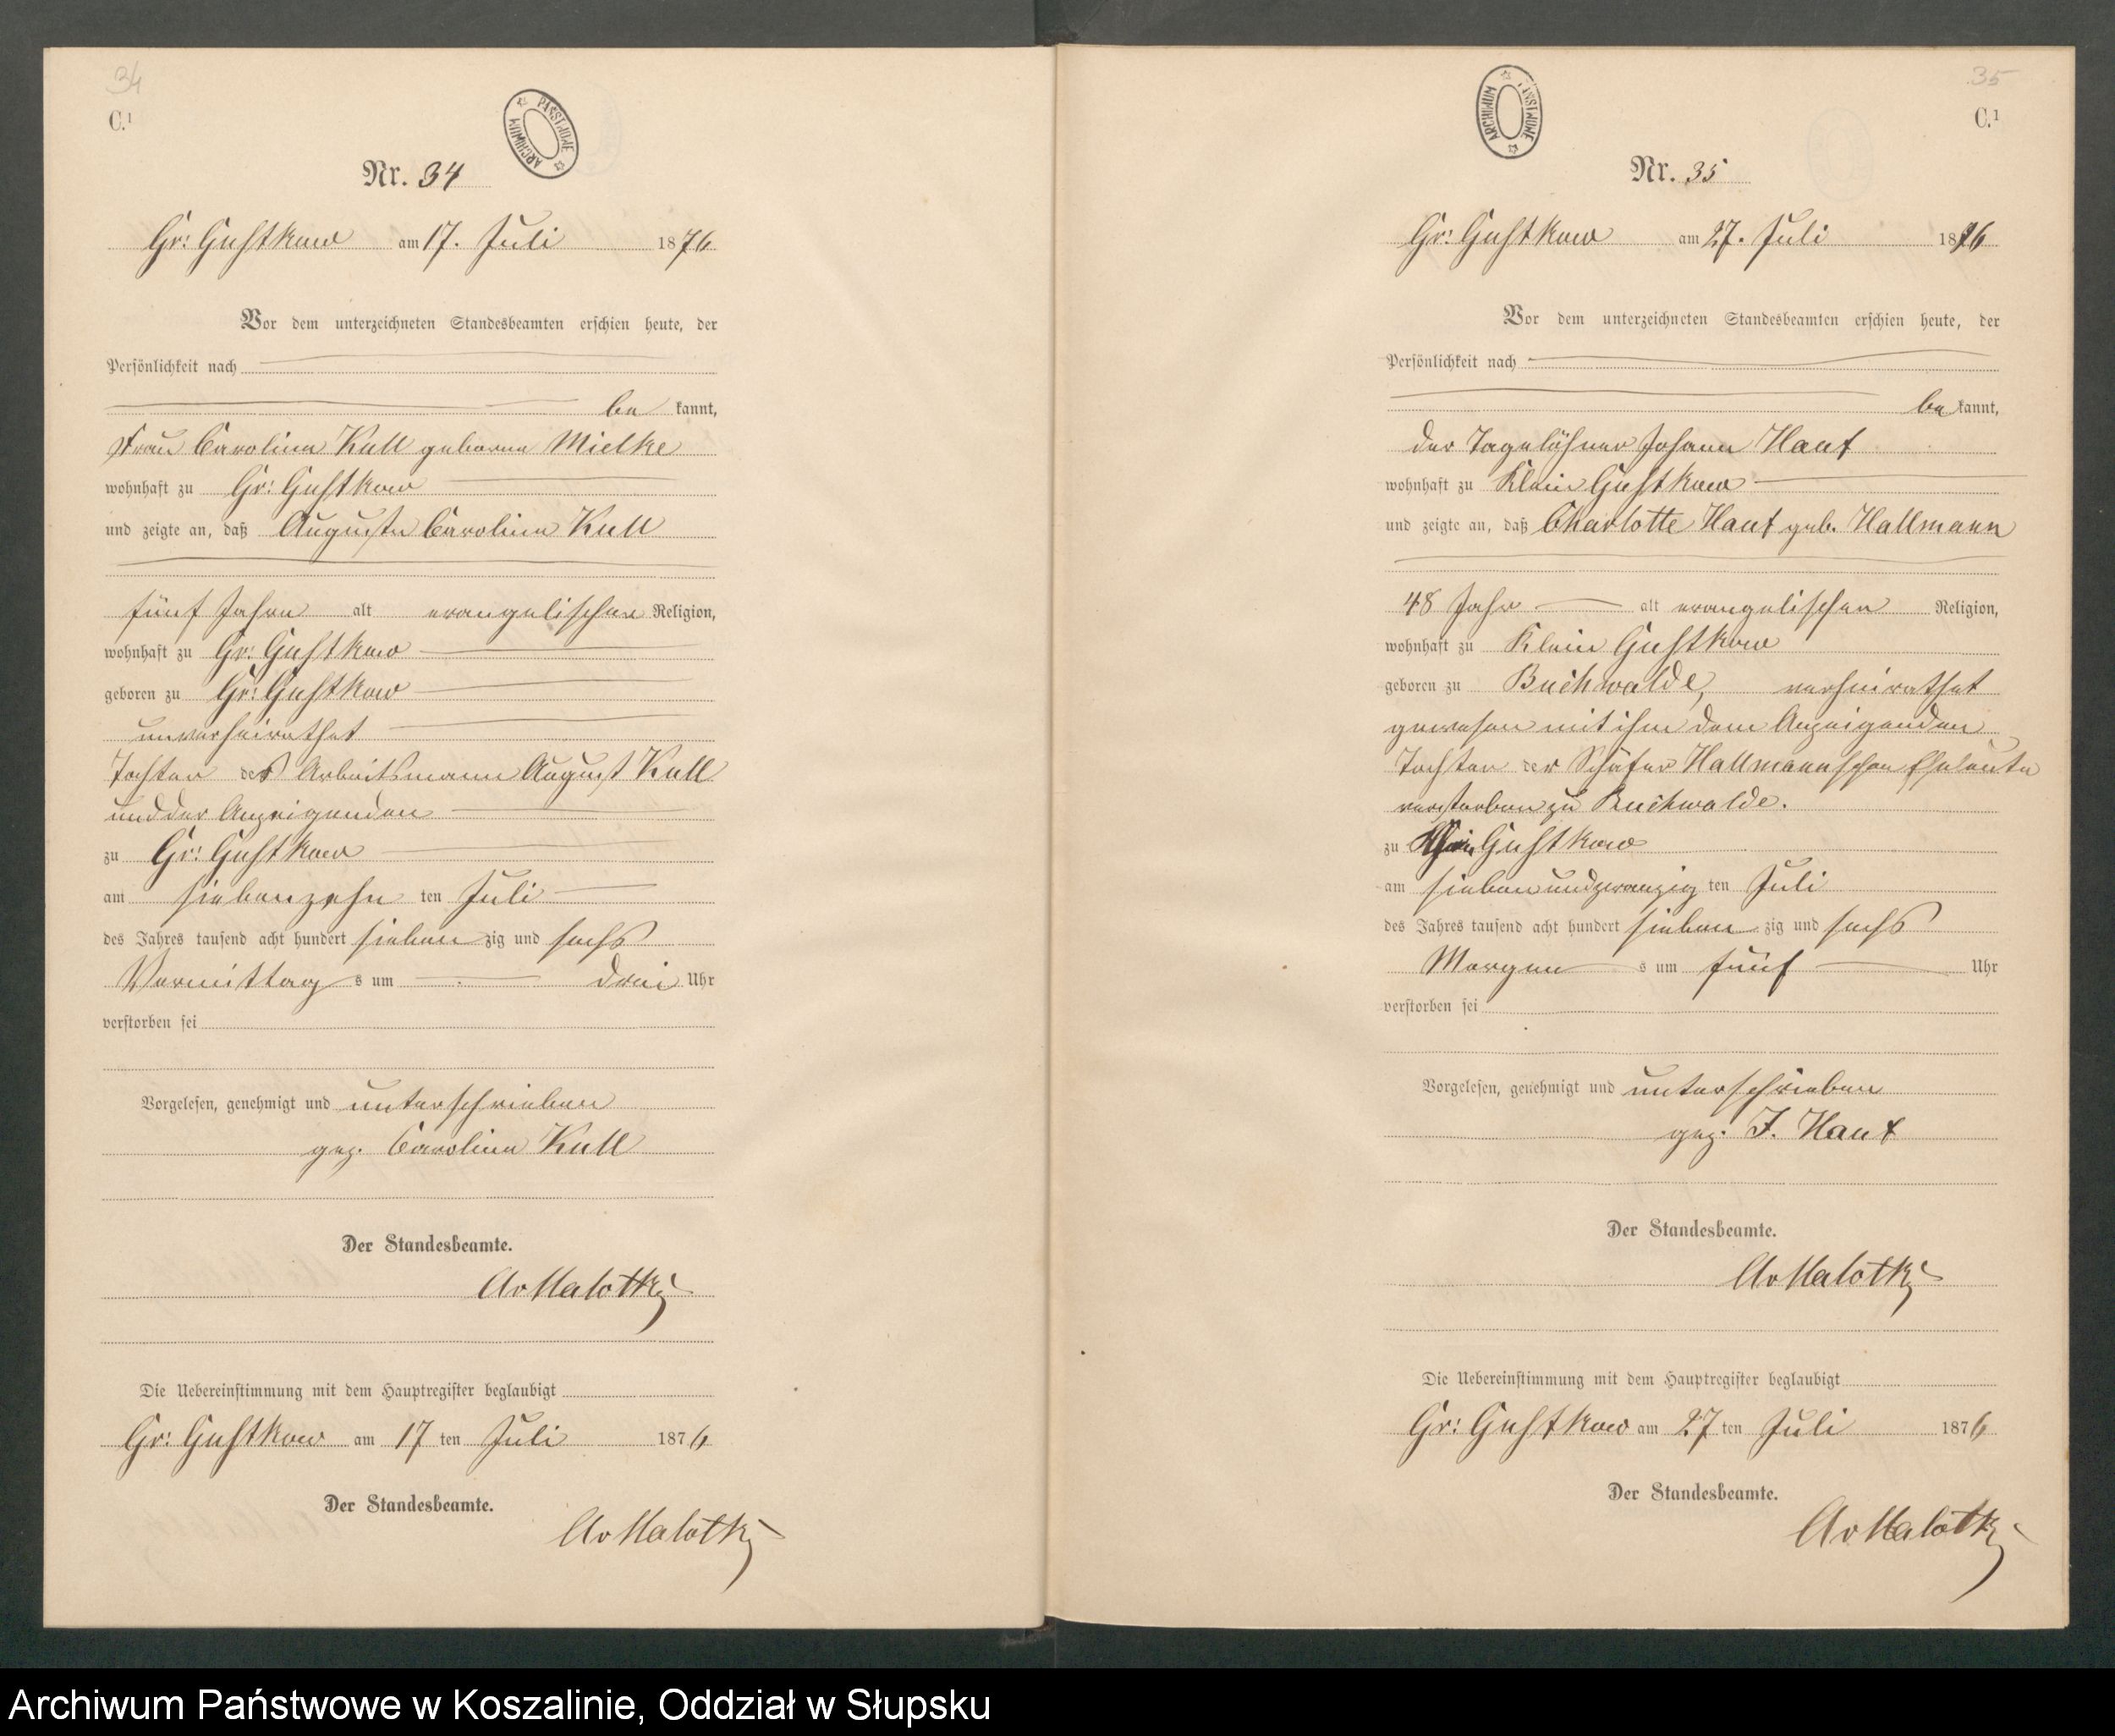 34
C.¹
ARCHIWUM PAŃSTWOWE
Nr. 34
Gr: Gustkow am 17. Juli 1876
Vor dem unterzeichneten Standesbeamten erschien heute, der
Persönlichkeit nach
be kannt,
Frau Caroline Kull geborene Mielke
wohnhaft zu Gr: Gustkow
und zeigte an, daß Auguste Caroline Kull
fünf Jahre alt evangelischer Religion,
wohnhaft zu Gr: Gustkow
geboren zu Gr: Gustkow
unverheirathet
Tochter des Arbeitsmann August Kull
und der Anzeigenden
zu Gr: Gustkow
am siebenzehn ten Juli
des Jahres tausend acht hundert sieben zig und sechs
Vormittag s um drei Uhr
verstorben sei
Vorgelesen, genehmigt und unterschrieben
gez. Caroline Kull
Der Standesbeamte.
AvMalotki
Die Uebereinstimmung mit dem Hauptregister beglaubigt
Gr: Gustkow am 17 ten Juli 1876
Der Standesbeamte.
AvMalotki
35
C.¹
ARCHIWUM PAŃSTWOWE
Nr. 35
Gr: Gustkow am 27. Juli 1876
Vor dem unterzeichneten Standesbeamten erschien heute, der
Persönlichkeit nach
be kannt,
der Tagelöhner Johann Hauf
wohnhaft zu Klein Gustkow
und zeigte an, daß Charlotte Hauf geb. Hallmann
48 Jahr alt evangelischer Religion,
wohnhaft zu Klein Gustkow
geboren zu Buchwalde, verheirathet
gewesen mit ihm dem Anzeigenden
Tochter der Schäfer Hallmannschen Eheleute
verstorben zu Buchwalde.
zu Klein Gustkow
am siebenundzwanzig ten Juli
des Jahres tausend acht hundert sieben zig und sechs
Morgen s um fünf Uhr
verstorben sei
Vorgelesen, genehmigt und unterschrieben
gez. J. Hauf
Der Standesbeamte.
AvMalotki
Die Uebereinstimmung mit dem Hauptregister beglaubigt
Gr: Gustkow am 27 ten Juli 1876
Der Standesbeamte.
AvMalotki
Archiwum Państwowe w Koszalinie, Oddział w Słupsku